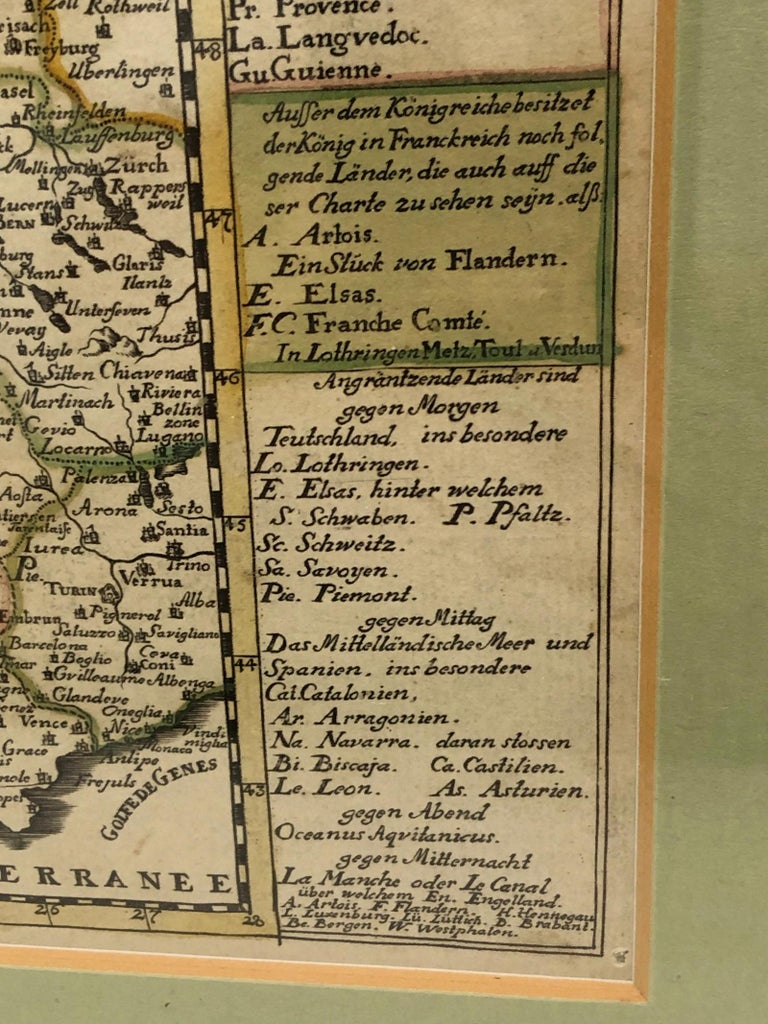 Zell Rothweil
eisach
Freyburg
Uberlingen
asel
Rheinfelden
Lauffenburg
Mellingen
Zürch
Zug
Rappers
weil
Lucern
BERN
Schwitz
burg
Stans
Glaris
Ilantz
Unterseven
nne
Vevay
Thusis
Aigle
Sitten
Chiavena
Martinach
Riviera
Bellin
zone
Gevio
Lugano
Locarno
Palenza
Aosta
Arona
Sesto
Santia
Iurea
Trino
Pie.
TURIN
Verrua
Alba
Embrun
Pignerol
Saluzzo
Savigliano
Barcelona
Boglio
Ceva
Coni
Gvilleaume
Albenga
Glandeve
Oneglia
Vence
Nice
Vindi
miglia
Monaco
Grace
Antipo
Frejuls
GOLFE DE GENES
ERRANEE
48
47
46
45
44
43
26
27
28
Pr. Provence.
La. Langvedoc.
Gu Guienne.
Ausser dem Königreiche besitzet
der König in Franckreich noch fol,
gende Länder, die auch auff die
ser Charte zu sehen seÿn. alß:
A. Artois.
Ein Stück von Flandern.
E. Elsas.
F.C. Franche Comté.
In Lothringen Metz, Toul u Verdun
Angräntzende Länder sind
gegen Morgen
Teutschland, ins besondere
Lo. Lothringen.
E. Elsas, hinter welchem
S. Schwaben. P. Pfaltz.
Sc. Schweitz.
Sa. Savoyen.
Pie. Piemont.
gegen Mittag
Das Mittelländische Meer und
Spanien, ins besondere
Cat. Catalonien,
Ar. Arragonien.
Na. Navarra. daran stossen
Bi. Biscaja. Ca. Castilien.
Le. Leon. As. Asturien.
gegen Abend
Oceanus Aqvitanicus.
gegen Mitternacht
La Manche oder Le Canal
über welchem En. Engelland.
A. Artois. F. Flandern. H. Hennegau
L. Luxenburg. Lü. Lüttich. B. Brabant.
Be. Bergen. W. Westphalen.